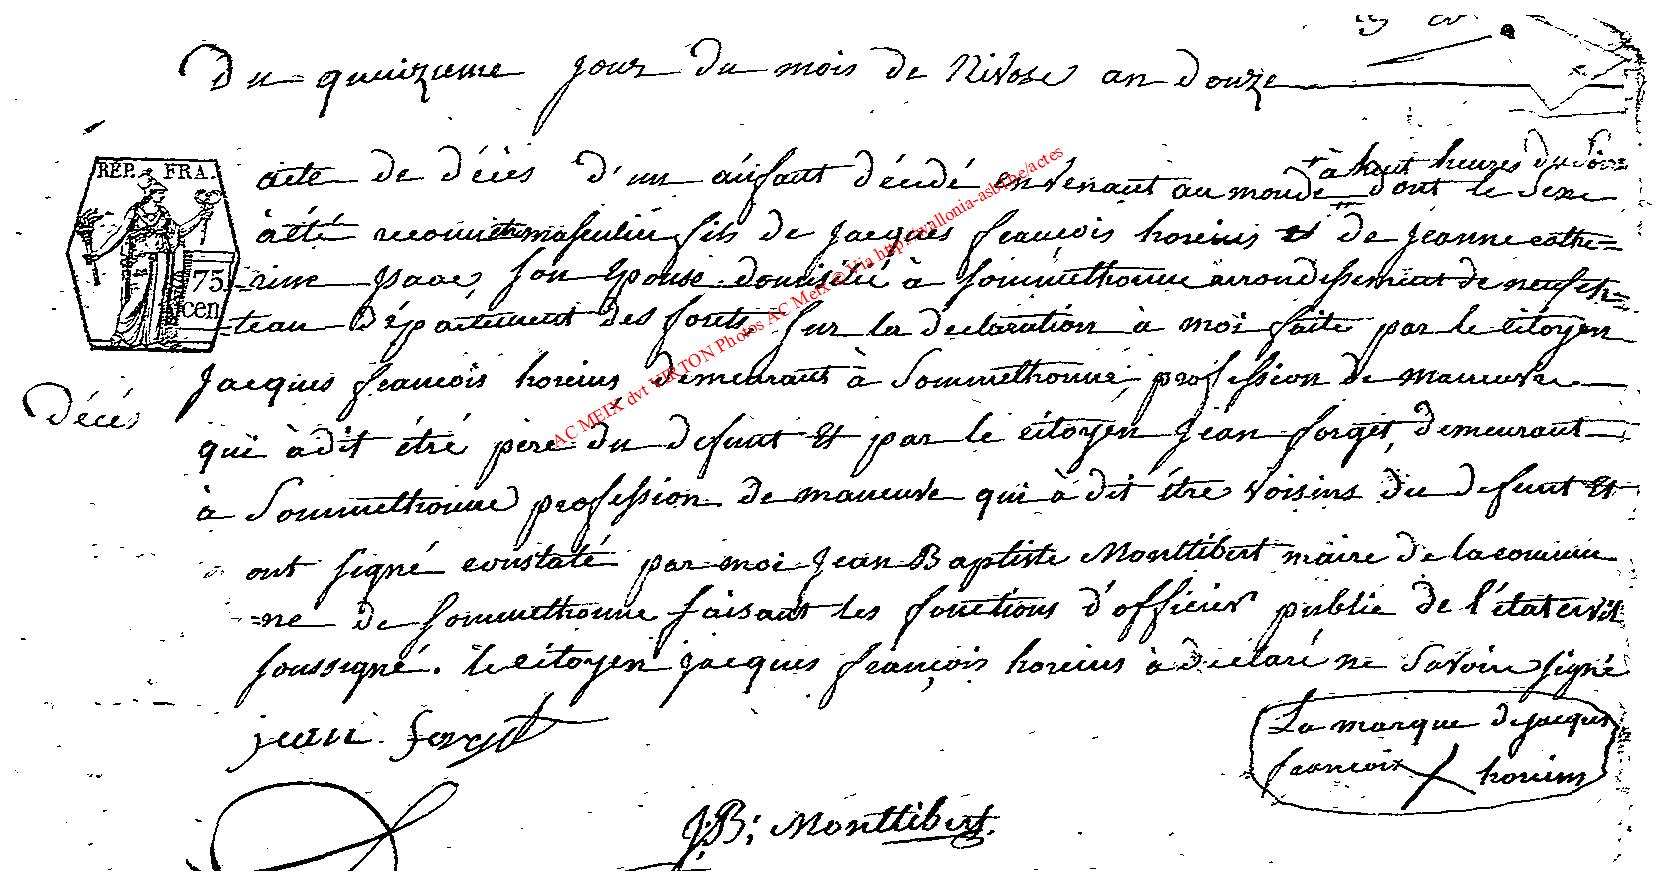 Du quinzieme jour du mois de Nivose an douze
REP. FRA.
75
cen
à huit heures du Soir
acte de décès d'un anfant décédé en venant au monde dont le Sexe
à été reconnu masculin fils de jacques francois horeins et de jeanne cathe=
=rine son Epouse domicilié à Sommethonne arrondissement de neufch=
=teau département des forets sur la declaration à moi faite par le citoyen
jacques francois horeins demeurant à Sommethonne, profession de maneuvre
Décés
qui à dit étré pere du defunt Et par le citoyen jean forget, demeurant
à Sommethonne profession de maneuvre qui à dit étre voisins du defunt Et
ont signé constaté par moi jean Baptiste Monttibert maire de la commu
=ne de Sommethonne faisant les fonctions d'officier public de l'état civil
soussigné. le citoyen jacques françois horeins à declaré ne Savoir signé
jean forget
La marque de jacques
francois horeins
J:B: Monttibert.
AC MEIX dvt VIRTON Photos AC Meix via http://wallonia-asbl.be/actes